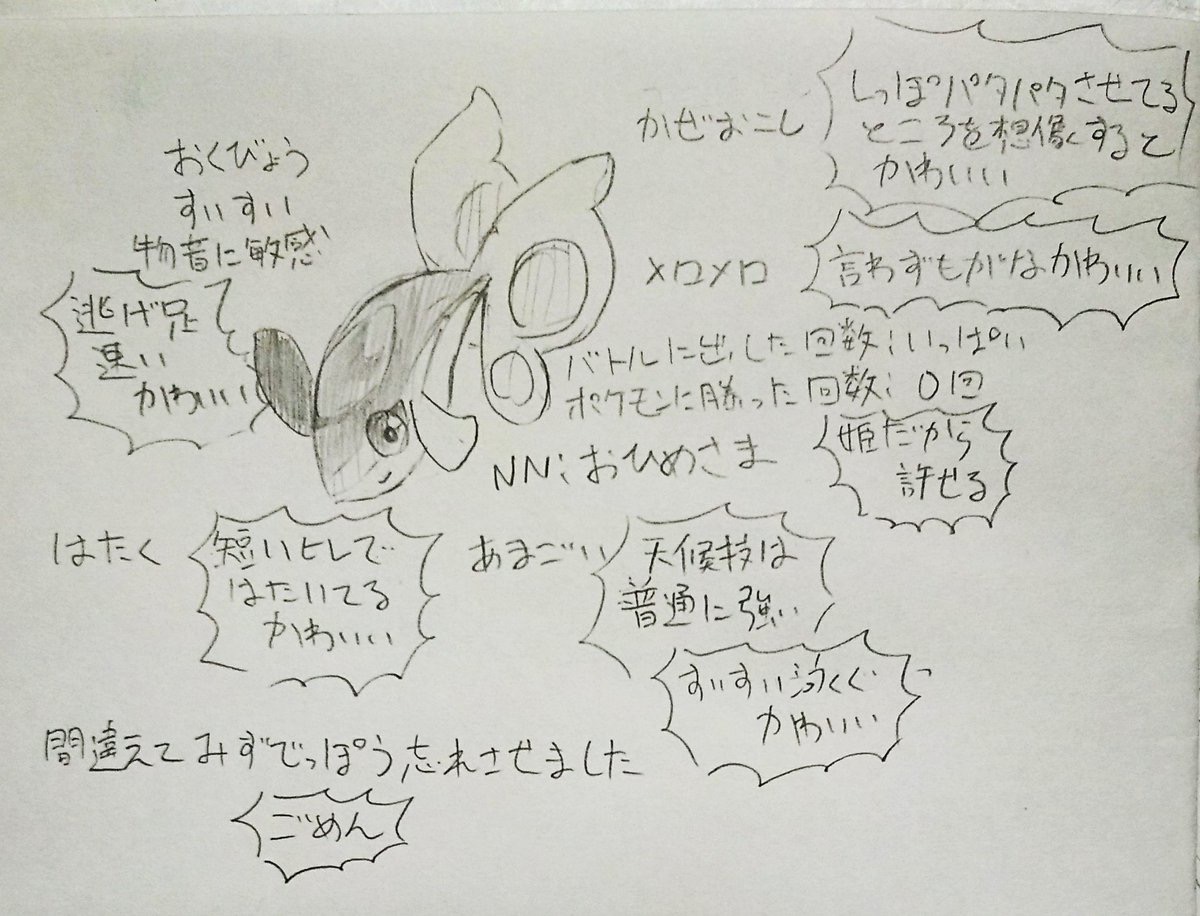 かぜおこし
しっぽパタパタさせてる
ところを想像すると
かわいい
おくびょう
すいすい
物音に敏感
逃げ足
速い
かわいい
メロメロ
言わずもがなかわいい
バトルに出した回数:いっぱい
ポケモンに勝った回数:0回
NN:おひめさま
姫だから
許せる
はたく
短いヒレで
はたいてる
かわいい
あまごい
天候技は
普通に強い
すいすい泳ぐ
かわいい
間違えてみずでっぽう忘れさせました
ごめん